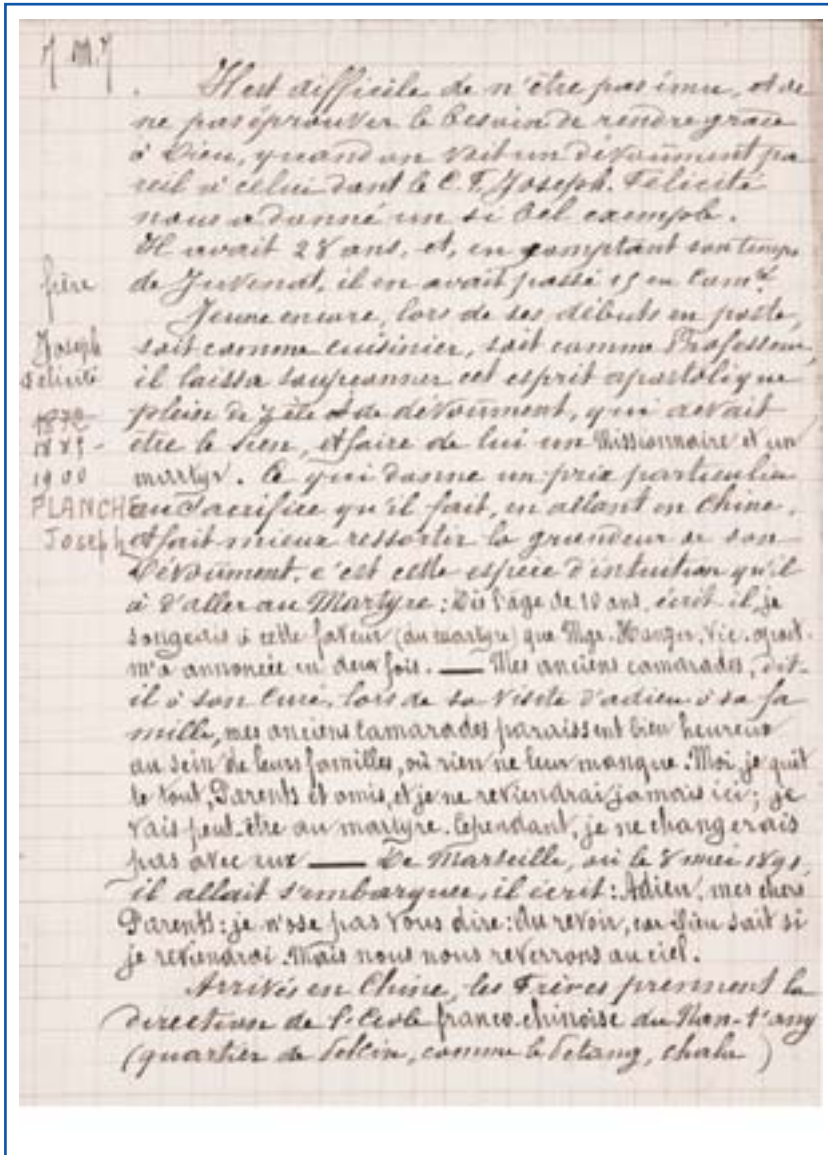 J. M. J.
Il est difficile de n'être pas ému, et de
ne pas éprouver le besoin de rendre grâce
à Dieu, quand on voit un dévoûment pa
reil à celui dont le C. F. Joseph. Félicité
nous a donné un si bel exemple.
Il avait 28 ans, et, en comptant son temps
de Juvénat, il en avait passé 15 en Comté
Jeune encore, lors de ses débuts en poste,
soit comme cuisinier, soit comme Professeur,
il laissa soupçonner cet esprit apostolique
plein de zèle et de dévoûment, qui devait
être le sien, et faire de lui un Missionnaire et un
martyr. Ce qui donne un prix particulier
au Sacrifice qu'il fait, en allant en Chine,
et fait mieux ressortir la grandeur de son
Dévoûment, c'est cette espèce d'intuition qu'il
a d'aller au Martyre : Dès l'âge de 10 ans, écrit-il, je
songeais à cette faveur (du martyre) que Mgr. Vic. apost.
m'a annoncée en deux fois. — Mes anciens camarades, dit-
il à son Curé, lors de sa visite d'adieu à sa fa
mille, mes anciens camarades paraissent bien heureux
au sein de leurs familles, où rien ne leur manque. Moi, je quit
te tout, Parents et amis, et je ne reviendrai jamais ici; je
vais peut-être au martyre. Cependant, je ne changerais
pas avec eux — De Marseille, où le 8 mars 1891,
il allait s'embarquer, il écrit : Adieu, mes chers
Parents : je n'ose pas vous dire : Au revoir, car Dieu sait si
je reviendrai. Mais nous nous reverrons au ciel.
Arrivés en Chine, les Frères prennent la
direction de l'École franco-chinoise du Nan-t'ang
(quartier de Pékin, comme le Petang, Chala)
frère
Joseph
Félicité
1872
1885-
1900
PLANCHE
Joseph